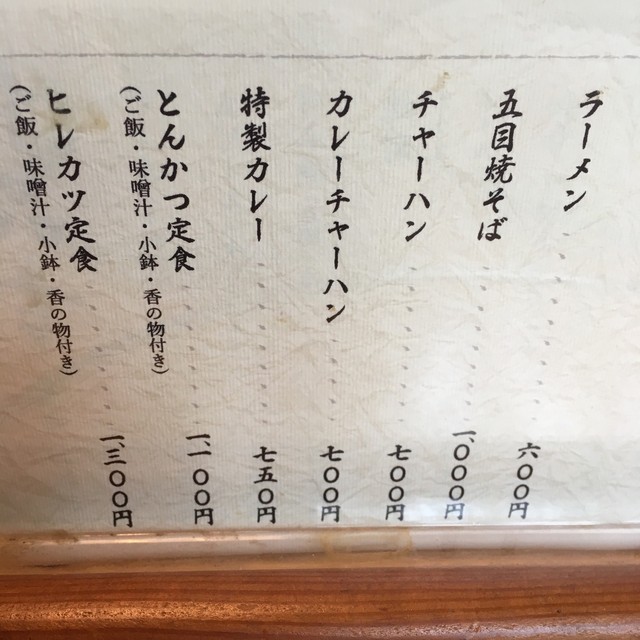 ラーメン 六〇〇円
五目焼そば 一、〇〇〇円
チャーハン 七〇〇円
カレーチャーハン 七〇〇円
特製カレー 七五〇円
とんかつ定食 一、一〇〇円
(ご飯・味噌汁・小鉢・香の物付き)
ヒレカツ定食 一、三〇〇円
(ご飯・味噌汁・小鉢・香の物付き)